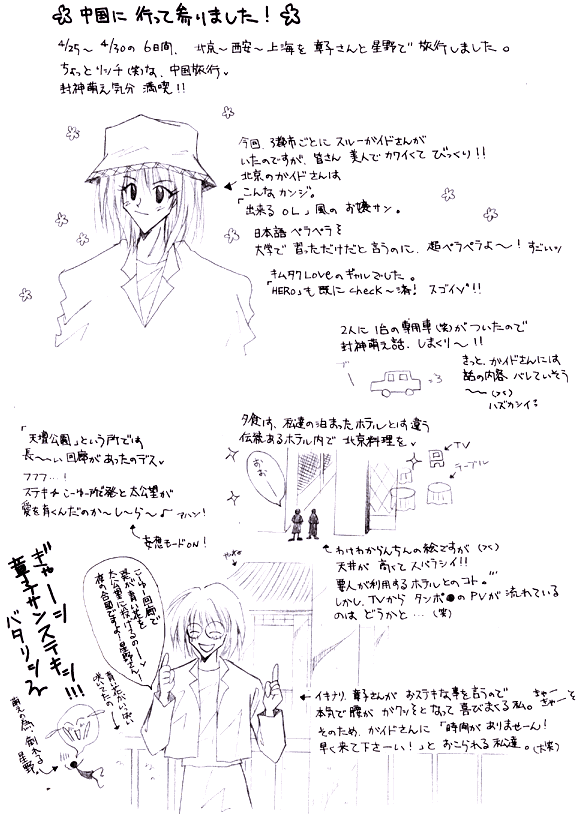 中国に行って参りました！
4/25〜4/30の6日間、北京〜西安〜上海を章子さんと星野で旅行しました。
ちょっとリッチ(笑)な、中国旅行
封神萌え気分 満喫!!
今回、3都市ごとにスルーガイドさんが
いたのですが、皆さん美人でカワイくてびっくり!!
北京のガイドさんは
こんなカンジ。
「出来るOL」風のお嬢サン。
日本語ペラペラを
大学で習っただけだと言うのに、超ペラペラよ〜！すごいッ
キムタクLoveのギャルでした。
「HERO」も既にcheck〜済！スゴイ!!
2人に1台の専用車(笑)がついたので
封神萌え話、しまくり〜!!
きっと、ガイドさんには
話の内容バレていそう
〜(>_<)
ハズカシイ
夕食は、私達の泊まったホテルとは違う
伝統あるホテル内で北京料理を
TV
テーブル
おお
「天壇公園」という所では
長〜い回廊があったのデス
フフフ…！
ステキチこーゆー所で発と太公望が
愛を育くんだのか〜し〜ら〜♪アハン！
妄想モードON！
わけわからんちんの絵ですが(>_<)
天井が高くてスバラシイ!!
要人が利用するホテルとのコト。
しかし、TVからタンポ●のPVが流れている
のはどうかと…(笑)
ギャーッ
章子サンステキッ!!!
バタリッ
こーゆー回廊で
発が青い花を
太公望に投げるのー！
夜の合図ですよー！星野さん！
青い花がいっぱい
咲いてたの
萌えの為、倒れる
星野
イキナリ、章子さんがおステキな事を言うので
本気で腰がガクッとなって喜びまくる私。
きゃー
きゃー
そのため、ガイドさんに「時間がありませーん！
早く来て下さーい！」とおこられる私達。(大笑)